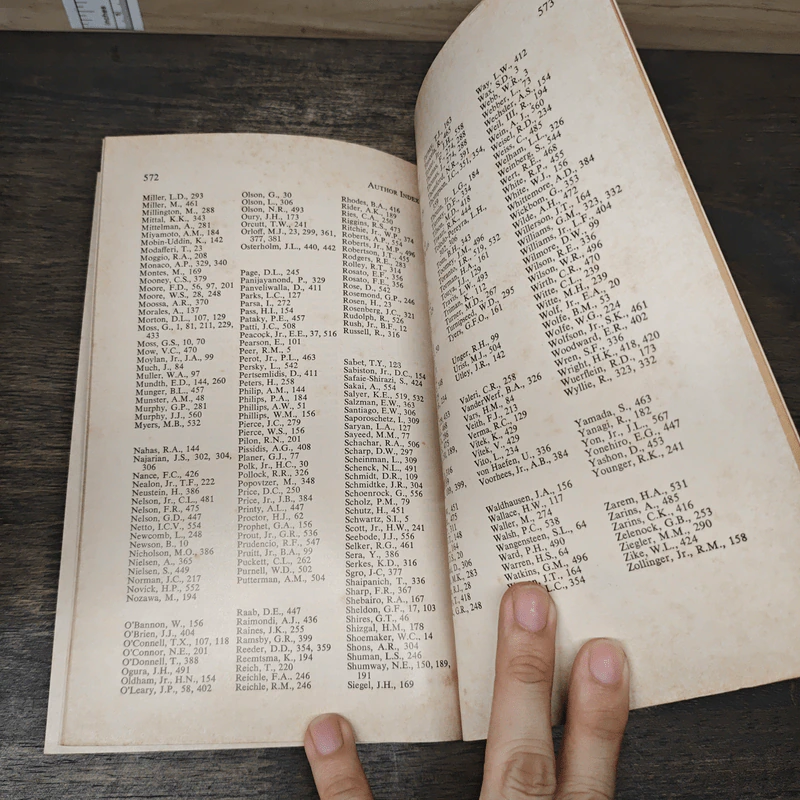 572
AUTHOR INDEX
Miller, L.D., 293
Miller, M., 461
Millington, M., 288
Mittal, K.K., 343
Mittelman, A., 281
Miyamoto, A.M., 184
Mobin-Uddin, K., 142
Modafferi, T., 23
Moggio, R.A., 208
Monaco, A.P., 329, 340
Montes, M., 169
Mooney, C.S., 379
Moore, F.D., 56, 97, 201
Moore, W.S., 28, 248
Moossa, A.R., 370
Morales, A., 137
Morton, D.L., 107, 129
Moss, G., 1, 81, 211, 229,
433
Moss, G.S., 10, 70
Mow, V.C., 470
Moylan, Jr., J.A., 99
Much, J., 84
Muller, W.A., 97
Mundth, E.D., 144, 260
Munger, B.L., 457
Munster, A.M., 48
Murphy, G.P., 281
Murphy, J.J., 560
Myers, M.B., 532
Nahas, R.A., 144
Najarian, J.S., 302, 304,
306
Nance, F.C., 426
Nealon, Jr., T.F., 222
Neustein, H., 386
Nelson, Jr., C.L., 481
Nelson, F.R., 475
Nelson, G.D., 447
Netto, I.C.V., 554
Newcomb, L., 248
Newson, B., 10
Nicholson, M.O., 386
Nielsen, A., 365
Nielsen, S., 449
Norman, J.C., 217
Novick, H.P., 552
Nozawa, M., 194
O'Bannon, W., 156
O'Brien, J.J., 404
O'Connell, T.X., 107, 118
O'Connor, N.E., 201
O'Donnell, T., 388
Ogura, J.H., 491
Oldham, Jr., H.N., 154
O'Leary, J.P., 58, 402
Olson, G., 30
Olson, L., 306
Olson, N.R., 493
Oury, J.H., 173
Orcutt, T.W., 241
Orloff, M.J., 23, 299, 361,
377, 381
Osterholm, J.L., 440, 442
Page, D.L., 245
Panijayanond, P., 329
Panveliwalla, D., 411
Parks, L.C., 127
Parsa, I., 272
Pass, H.I., 154
Pataky, P.E., 457
Patti, J.C., 508
Peacock, Jr., E.E., 37, 516
Pearson, E., 101
Peer, R.M., 5
Perot, Jr., P.L., 463
Persky, L., 542
Pertsemlidis, D., 411
Peters, H., 258
Philip, A.M., 144
Phillips, P.A., 184
Phillips, A.W., 51
Phillips, W.M., 156
Pierce, J.C., 279
Pierce, W.S., 156
Pilon, R.N., 201
Pissidis, A.G., 408
Planer, G.J., 77
Polk, Jr., H.C., 30
Pollock, R.R., 326
Popovtzer, M., 348
Price, D.C., 250
Price, Jr., J.B., 384
Printy, A.L., 447
Proctor, H.J., 62
Prophet, G.A., 156
Prout, Jr., G.R., 536
Prudencio, R.F., 547
Pruitt, Jr., B.A., 99
Puckett, C.L., 262
Purnell, W.D., 502
Putterman, A.M., 504
Raab, D.E., 447
Raimondi, A.J., 436
Raines, J.K., 255
Ramsby, G.R., 399
Reeder, D.D., 354, 359
Reemtsma, K., 194
Reich, T., 220
Reichle, F.A., 246
Reichle, R.M., 246
Rhodes, B.A., 416
Rider, A.K., 189
Ries, C.A., 336
Riggins, R.S., 473
Ritchie, Jr., W.P., 374
Roberts, A.P., 554
Roberts, Jr., M.B., 496
Robertson, J.T., 455
Rodgers, R.E., 283
Rolley, R.T., 314
Rosato, E.F., 356
Rosato, F.E., 356
Rose, D., 542
Rosemond, G.P., 246
Rosen, H., 23
Rosenberg, J.C., 321
Rudolph, R., 526
Rush, Jr., B.F., 12
Russell, R., 316
Sabet, T.Y., 123
Sabiston, Jr., D.C., 154
Safaie-Shirazi, S., 424
Sakai, A., 554
Salyer, K.E., 519, 532
Salzman, E.W., 363
Santiago, E.W., 306
Saporoschetz, I., 309
Saryan, L.A., 127
Sayeed, M.M., 77
Schachar, R.A., 506
Scharp, D.W., 297
Scheinman, L., 309
Schenck, N.L., 491
Schmidt, D.R., 109
Schmidtke, J.R., 304
Schoenrock, G., 556
Scholz, P.M., 79
Schutz, H., 451
Schwartz, S.I., 5
Scott, Jr., H.W., 241
Seebode, J.J., 556
Selker, R.G., 461
Sera, Y., 386
Serkes, K.D., 316
Sgro, J-C, 377
Shaipanich, T., 336
Sharp, F.R., 367
Shebairo, R.A., 167
Sheldon, G.F., 17, 103
Shires, G.T., 46
Shizgal, H.M., 178
Shoemaker, W.C., 14
Shons, A.R., 304
Shuman, L.S., 246
Shumway, N.E., 150, 189,
191
Siegel, J.H., 169
573
Unger, R.H., 99
Urist, M.J., 504
Utley, J.R., 142
Valeri, C.R., 258
VanderWerf, B.A., 326
Vars, H.M., 84
Veith, F.J., 213
Verma, R.C., 129
Vitek, K., 429
Vitek, V., 429
Vito, L., 234
von Haefen, U., 336
Voorhees, Jr., A.B., 384
Waldhausen, J.A., 156
Wallace, H.W., 117
Waller, M., 274
Walsh, P.C., 538
Wangensteen, S.L., 64
Ward, P.H., 490
Warren, H.S., 64
Watkins, G.M., 496
J.T., 164
L.C., 354
Way, L.W., 412
Wax, S.D., 3
Webb, W.R., 3
Webber, B., 73
Wechsler, A.S., 154
Weil, III, R., 194
Wein, A.J., 560
Weisel, R.D., 234
Weiss, Y., 485
Welham, L.L., 326
Wenberg, S., 544
Wert, R., 468
White, R.E., 455
White, W.J., 156
Whittemore, A.D., 384
Wickbom, G., 353
Wilkerson, J., 164
Williams, G.M., 323, 332
Williams, Jr., L.F., 404
Wilmore, D.W., 99
Wilson, R.E., 336
Wilson, W.R., 496
Wirth, C.R., 470
Wittig, C.L., 239
Witte, M.H., 239
Wolf, Jr., E.A., 20
Wolfe, W.G., 224
Wolfson, Jr., S.K., 461
Woodward, E.R., 402
Wright, H.K., 418, 420
Wuerflein, R.D., 173
Wyllie, R., 323, 332
Yamada, S., 463
Yanagi, R., 182
Yon, Jr., J.L., 567
Yonehiro, E.G., 447
Yashon, D., 453
Younger, R.K., 241
Zarem, H.A., 531
Zarins, A., 485
Zarins, C.K., 416
Zelenock, G.B., 253
Ziegler, M.M., 290
Zike, W.L., 424
Zollinger, Jr., R.M., 158